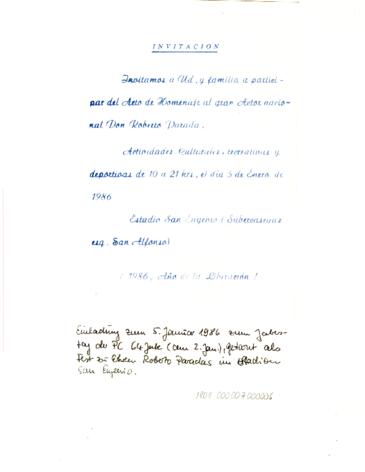 INVITACION
Invitamos a Ud. y familia a partici-
par del Acto de Homenaje al gran Actor nacio-
nal Don Roberto Parada.
Actividades Culturales, recreativas y
deportivas de 10 a 21 hrs, el día 5 de Enero de
1986
Estadio San Eugenio (Subercaseaux
esq. San Alfonso)
¡ 1986, Año de la Liberación !
Einladung zum 5. Januar 1986 zum Jahres-
tag der PC 64 Jahre (am 2. Jan), getarnt als
Fest zu Ehren Roberto Paradas im Stadion
San Eugenio.
000007 000006